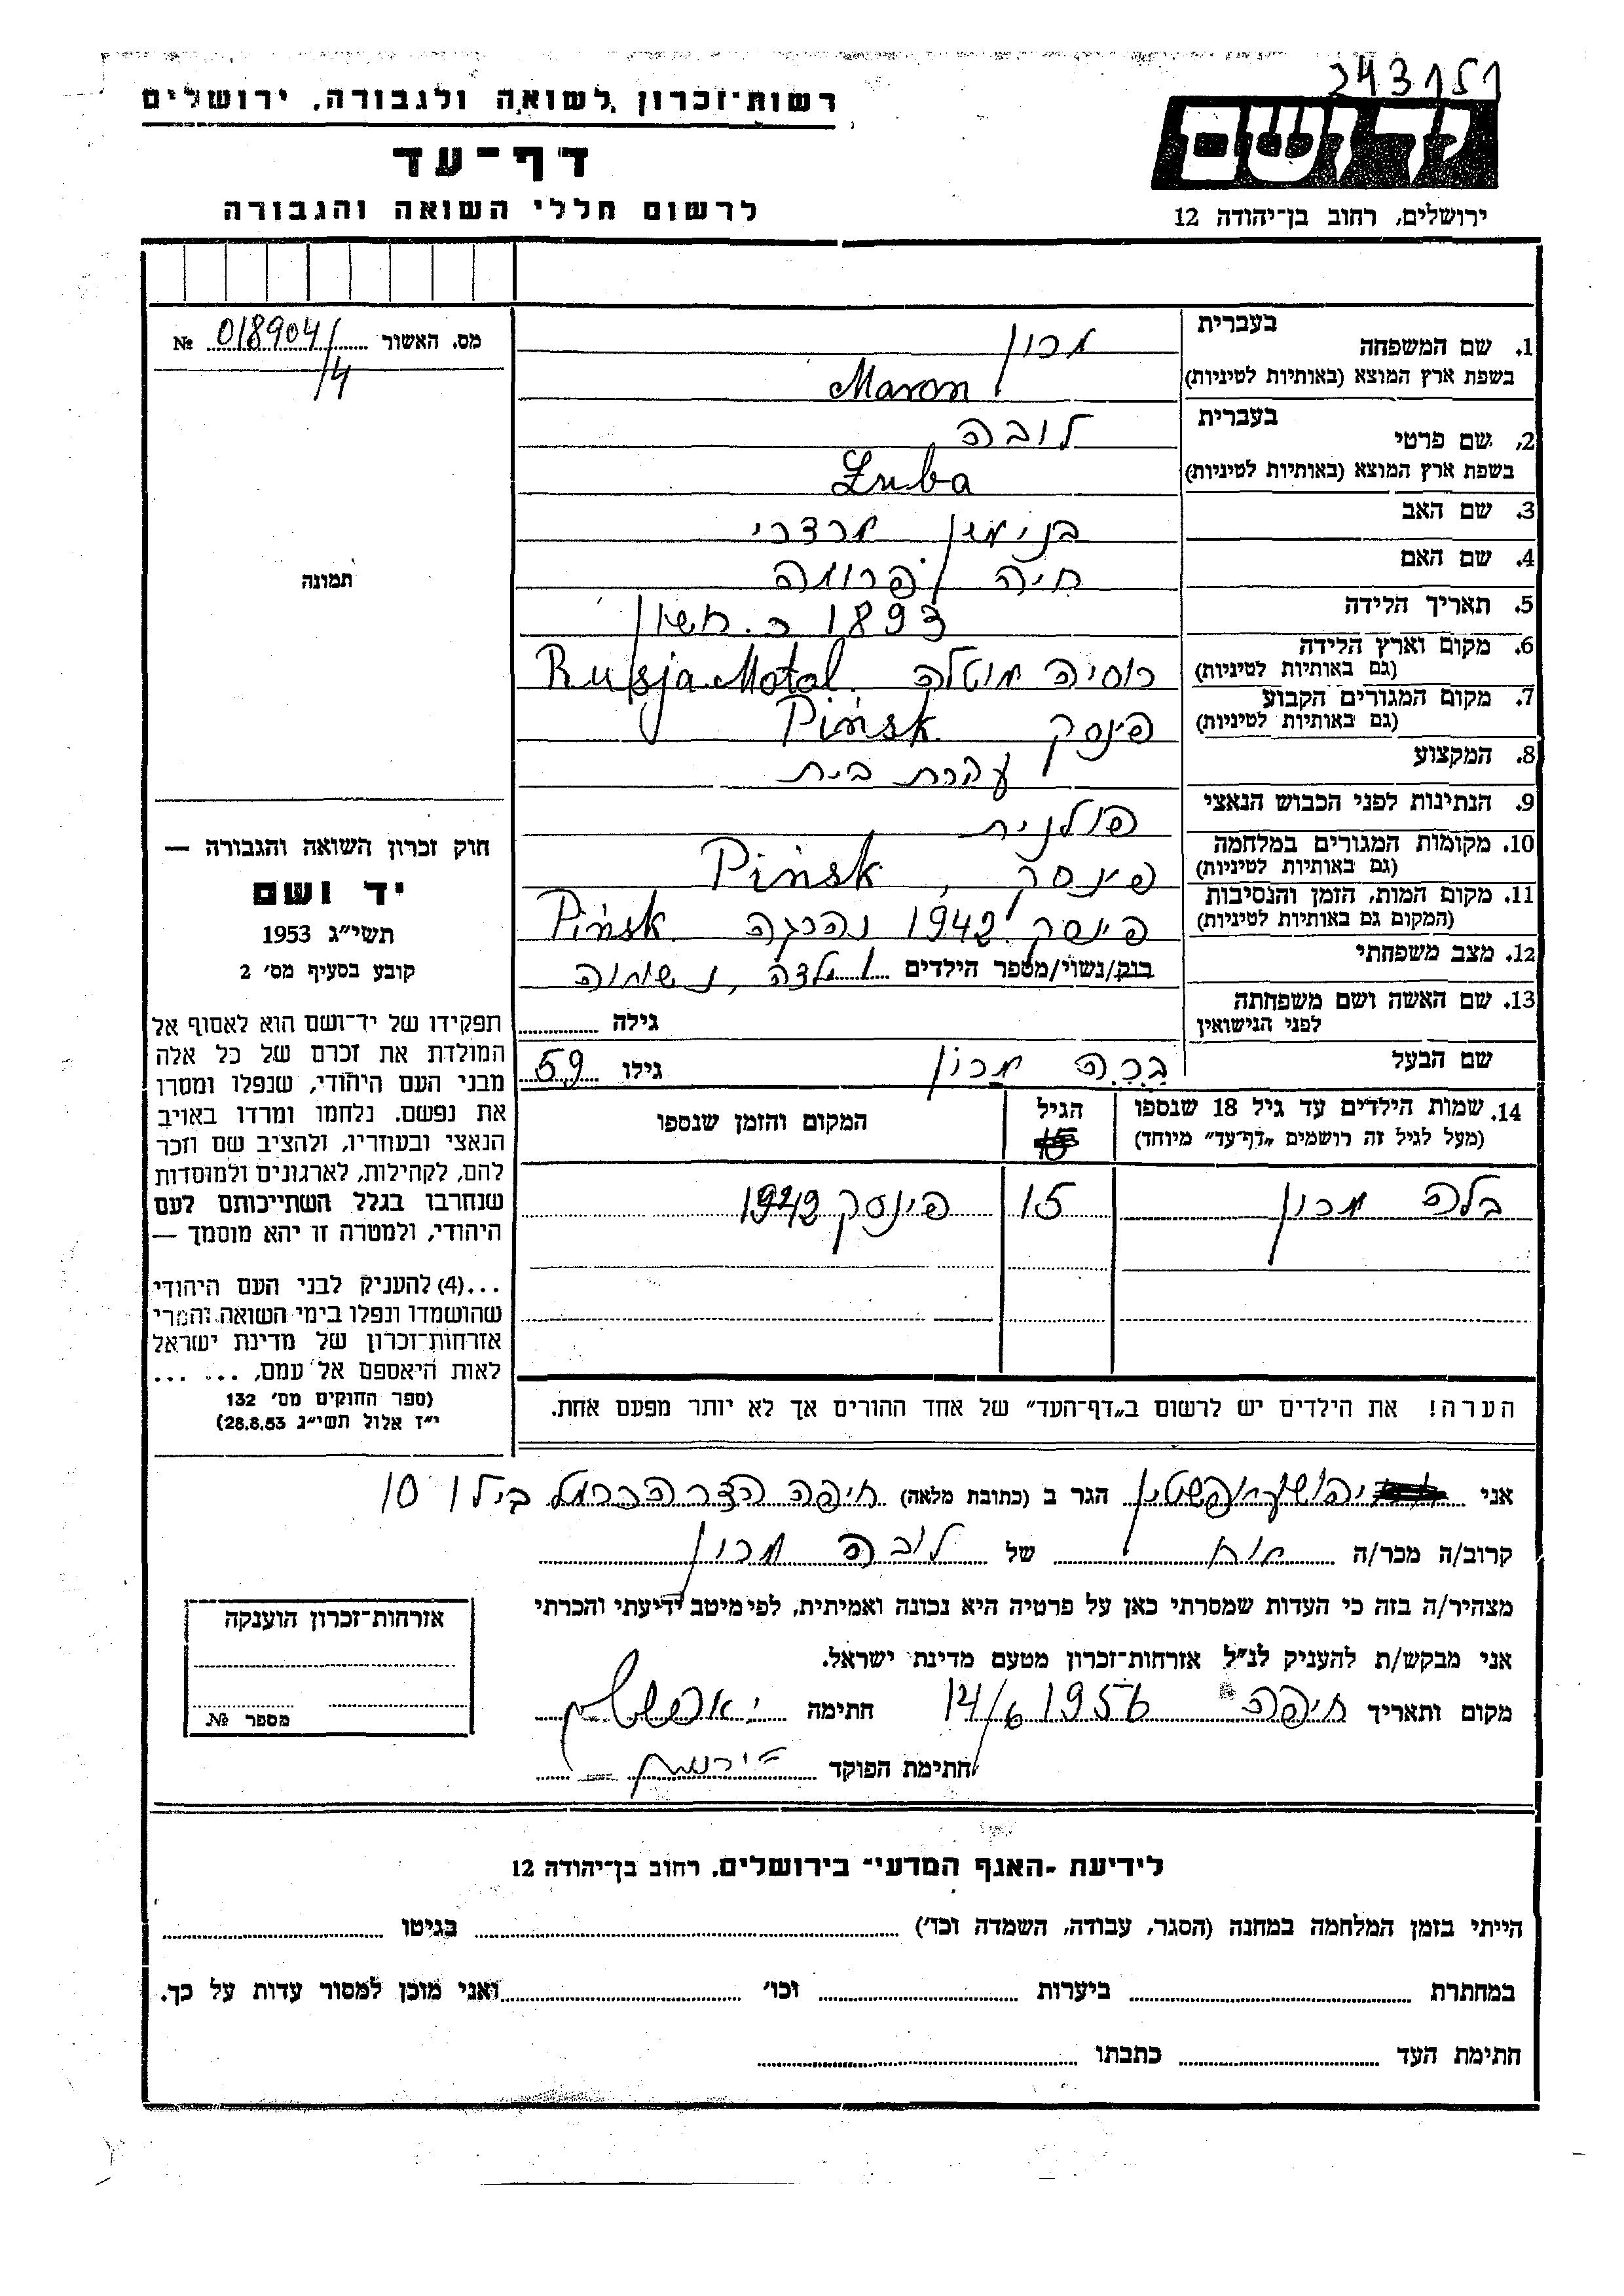 243151
רשות-זכרון לשואה ולגבורה, ירושלים
יד ושם
דף-עד
לרשום חללי השואה והגבורה
ירושלים, רחוב בן-יהודה 12
מס. האשור 018904/ №
/4
1. שם המשפחה בעברית מרון
בשפת ארץ המוצא (באותיות לטיניות) Maron
2. שם פרטי בעברית לובה
בשפת ארץ המוצא (באותיות לטיניות) Luba
3. שם האב בנימין מרדכי
4. שם האם חיה פרומה
5. תאריך הלידה 1893 כ. חשון
6. מקום וארץ הלידה (גם באותיות לטיניות) רוסיה מוטלה Rusja Motol
7. מקום המגורים הקבוע (גם באותיות לטיניות) פינסק Pińsk
8. המקצוע עקרת בית
9. הנתינות לפני הכבוש הנאצי פולנית
10. מקומות המגורים במלחמה (גם באותיות לטיניות) פינסק, Pińsk
11. מקום המות, הזמן והנסיבות (המקום גם באותיות לטיניות) פינסק 1942 נהרגה Pińsk
12. מצב משפחתי רווק/נשוי/מספר הילדים 1 ילדה, נשואה
13. שם האשה ושם משפחתה לפני הנישואין גילה
שם הבעל מרון גילו 59
14. שמות הילדים עד גיל 18 שנספו (מעל לגיל זה רושמים „דף-עד" מיוחד) הגיל המקום והזמן שנספו
בלה מרון 15 פינסק 1942
הערה! את הילדים יש לרשום ב„דף-העד" של אחד ההורים אך לא יותר מפעם אחת.
תמונה
חוק זכרון השואה והגבורה —
יד ושם
תשי"ג 1953
קובע בסעיף מס' 2
תפקידו של יד-ושם הוא לאסוף אל
המולדת את זכרם של כל אלה
מבני העם היהודי, שנפלו ומסרו
את נפשם. נלחמו ומרדו באויב
הנאצי ובעוזריו, ולהציב שם וזכר
להם, לקהילות, לארגונים ולמוסדות
שנחרבו בגלל השתייכותם לעם
היהודי, ולמטרה זו יהא מוסמך —
...(4) להעניק לבני העם היהודי
שהושמדו ונפלו בימי השואה והמרי
אזרחות-זכרון של מדינת ישראל
לאות היאספם אל עמם, ... ...
(ספר החוקים מס' 132
י"ז אלול תשי"ג 28.8.53)
אני יהושע הגר ב (כתובת מלאה) חיפה הדר הכרמל בילו 10
קרוב/ה מכר/ה של לובה מרון
מצהיר/ה בזה כי העדות שמסרתי כאן על פרטיה היא נכונה ואמיתית, לפי מיטב ידיעתי והכרתי
אני מבקש/ת להעניק לנ"ל אזרחות-זכרון מטעם מדינת ישראל.
מקום ותאריך חיפה 14/6 1956 חתימה
חתימת הפוקד
אזרחות-זכרון הוענקה
מספר №
לידיעת -האגף המדעי- בירושלים. רחוב בן-יהודה 12
הייתי בזמן המלחמה במחנה (הסגר, עבודה, השמדה וכו') בגיטו
במחתרת ביערות וכו' ואני מוכן למסור עדות על כך.
חתימת העד כתבתו